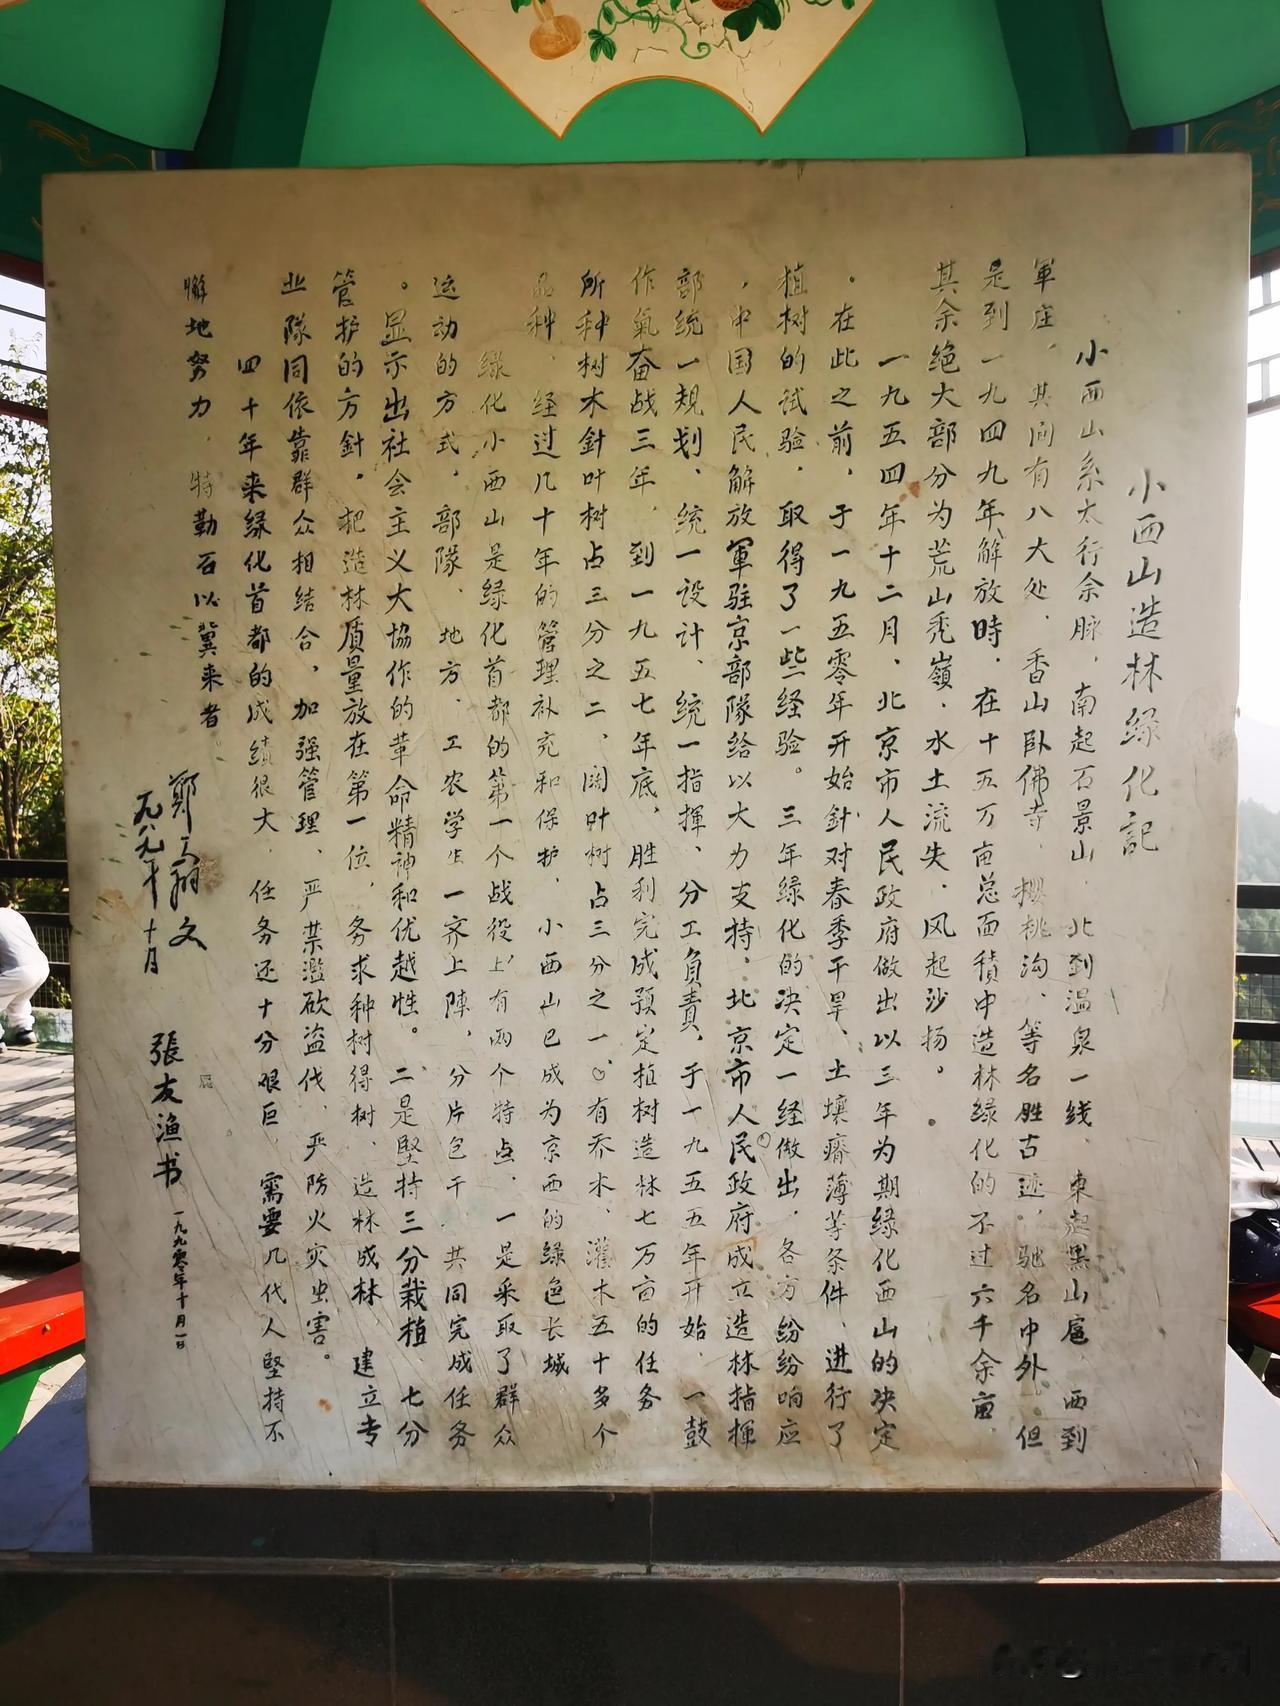 小西山造林绿化記
小西山系太行余脉，南起石景山，北到温泉一线，東起黑山扈，西到
軍庄，其间有八大处，香山卧佛寺，樱桃沟，等名胜古迹，驰名中外。但
是到一九四九年解放時，在十五万亩总面积中造林绿化的不过六千余亩，
其余绝大部分为荒山秃嶺，水土流失，风起沙扬。
一九五四年十二月，北京市人民政府做出以三年为期绿化西山的决定
。在此之前，于一九五零年开始針对春季干旱、土壤瘠薄等条件，进行了
植树的试验，取得了一些经验。三年绿化的决定一经做出，各方纷纷响应
，中国人民解放軍驻京部隊给以大力支持，北京市人民政府成立造林指揮
部统一规划，统一设计，统一指揮，分工负责，于一九五五年开始，一鼓
作氣奋战三年，到一九五七年底，胜利完成预定植树造林七万亩的任务
所种树木針叶树占三分之二，阔叶树占三分之一。有乔木、灌木五十多个
品种，经过几十年的管理补充和保护，小西山已成为京西的绿色长城
绿化小西山是绿化首都的第一个战役，有两个特点，一是采取了群众
运动的方式，部隊、地方、工农学生一齐上陣，分片包干，共同完成任务
。显示出社会主义大協作的革命精神和优越性。二是堅持三分栽植，七分
管护的方針，把造林质量放在第一位，务求种树得树，造林成林，建立专
业隊同依靠群众相结合，加强管理，严禁滥砍盗伐，严防火灾虫害。
四十年来绿化首都的成绩很大，任务还十分艰巨，需要几代人堅持不
懈地努力，特勒石以冀来者
鄭天翔文
一九八九年十月
張友渔书
一九九零年十月一日